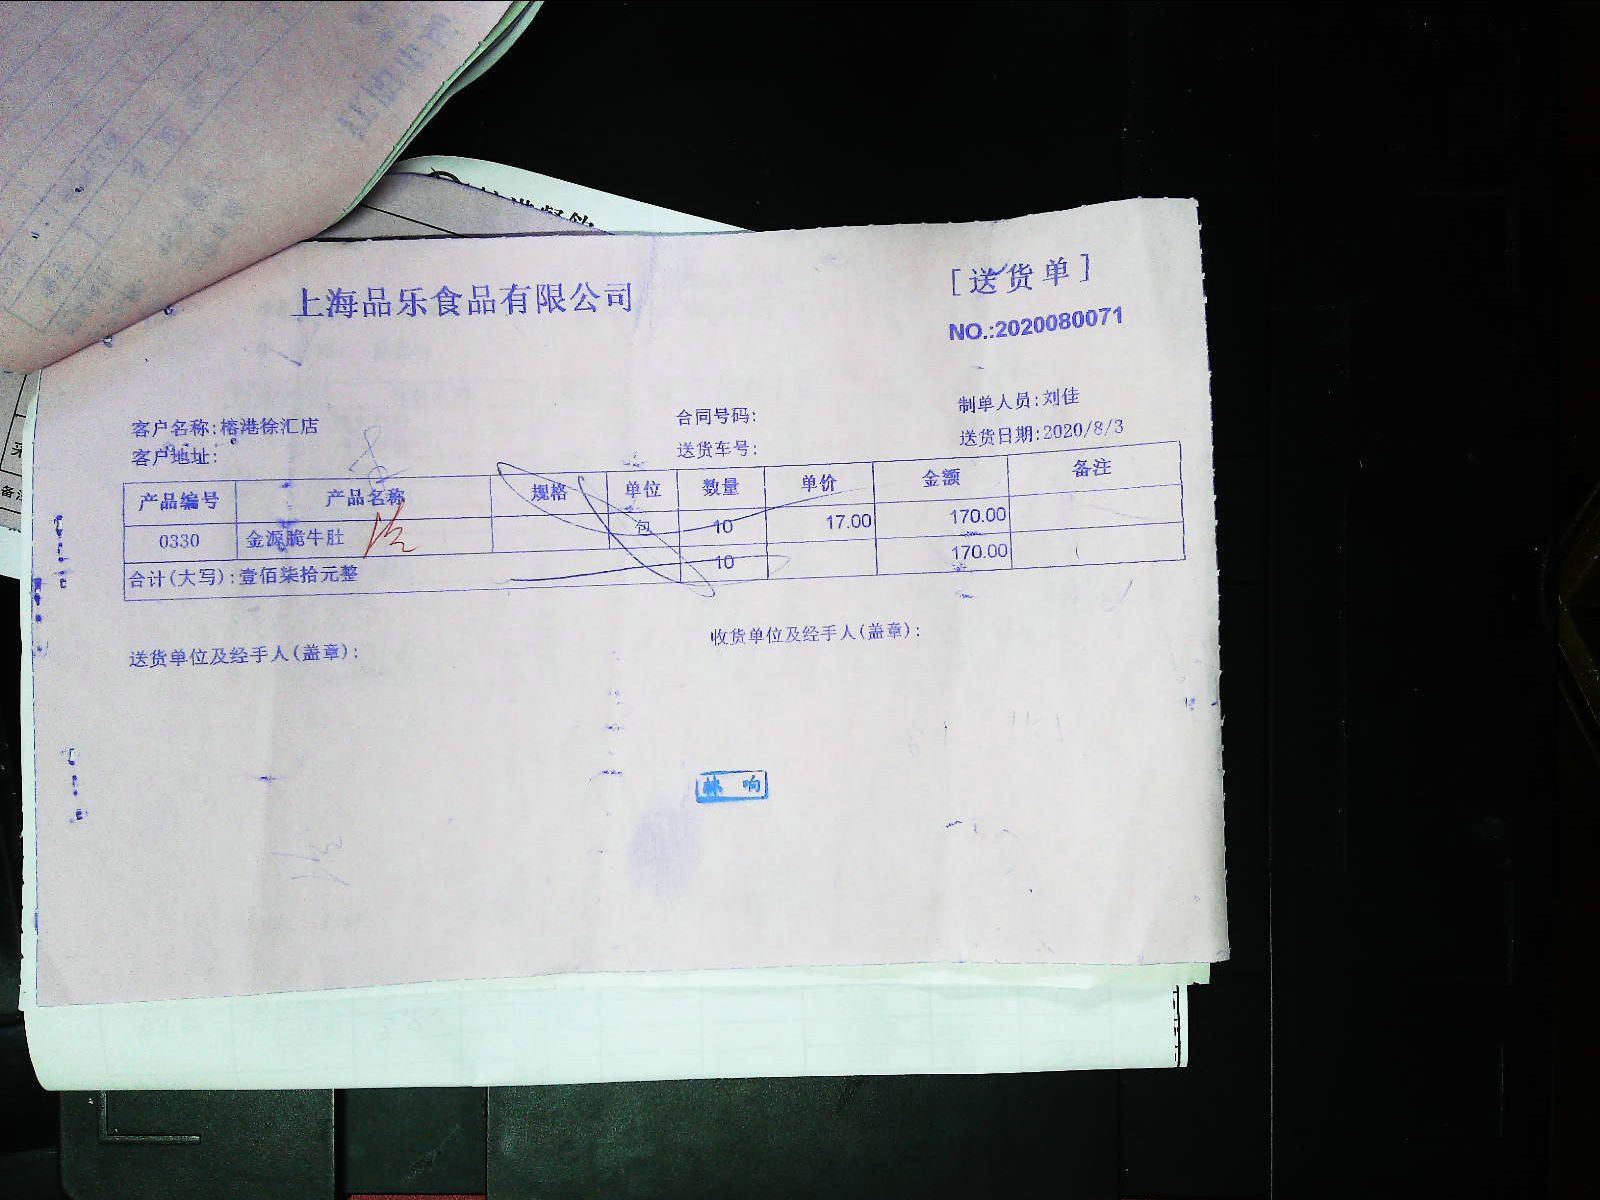 上海品乐食品有限公司
[送货单]
NO.:2020080071
客户名称:榕港徐汇店
合同号码:
制单人员:刘佳
客户地址:
送货车号:
送货日期:2020/8/3
产品编号 产品名称 规格 单位 数量 单价 金额 备注
0330 金源脆牛肚 包 10 17.00 170.00
合计(大写):壹佰柒拾元整 10 170.00
送货单位及经手人(盖章):
收货单位及经手人(盖章):